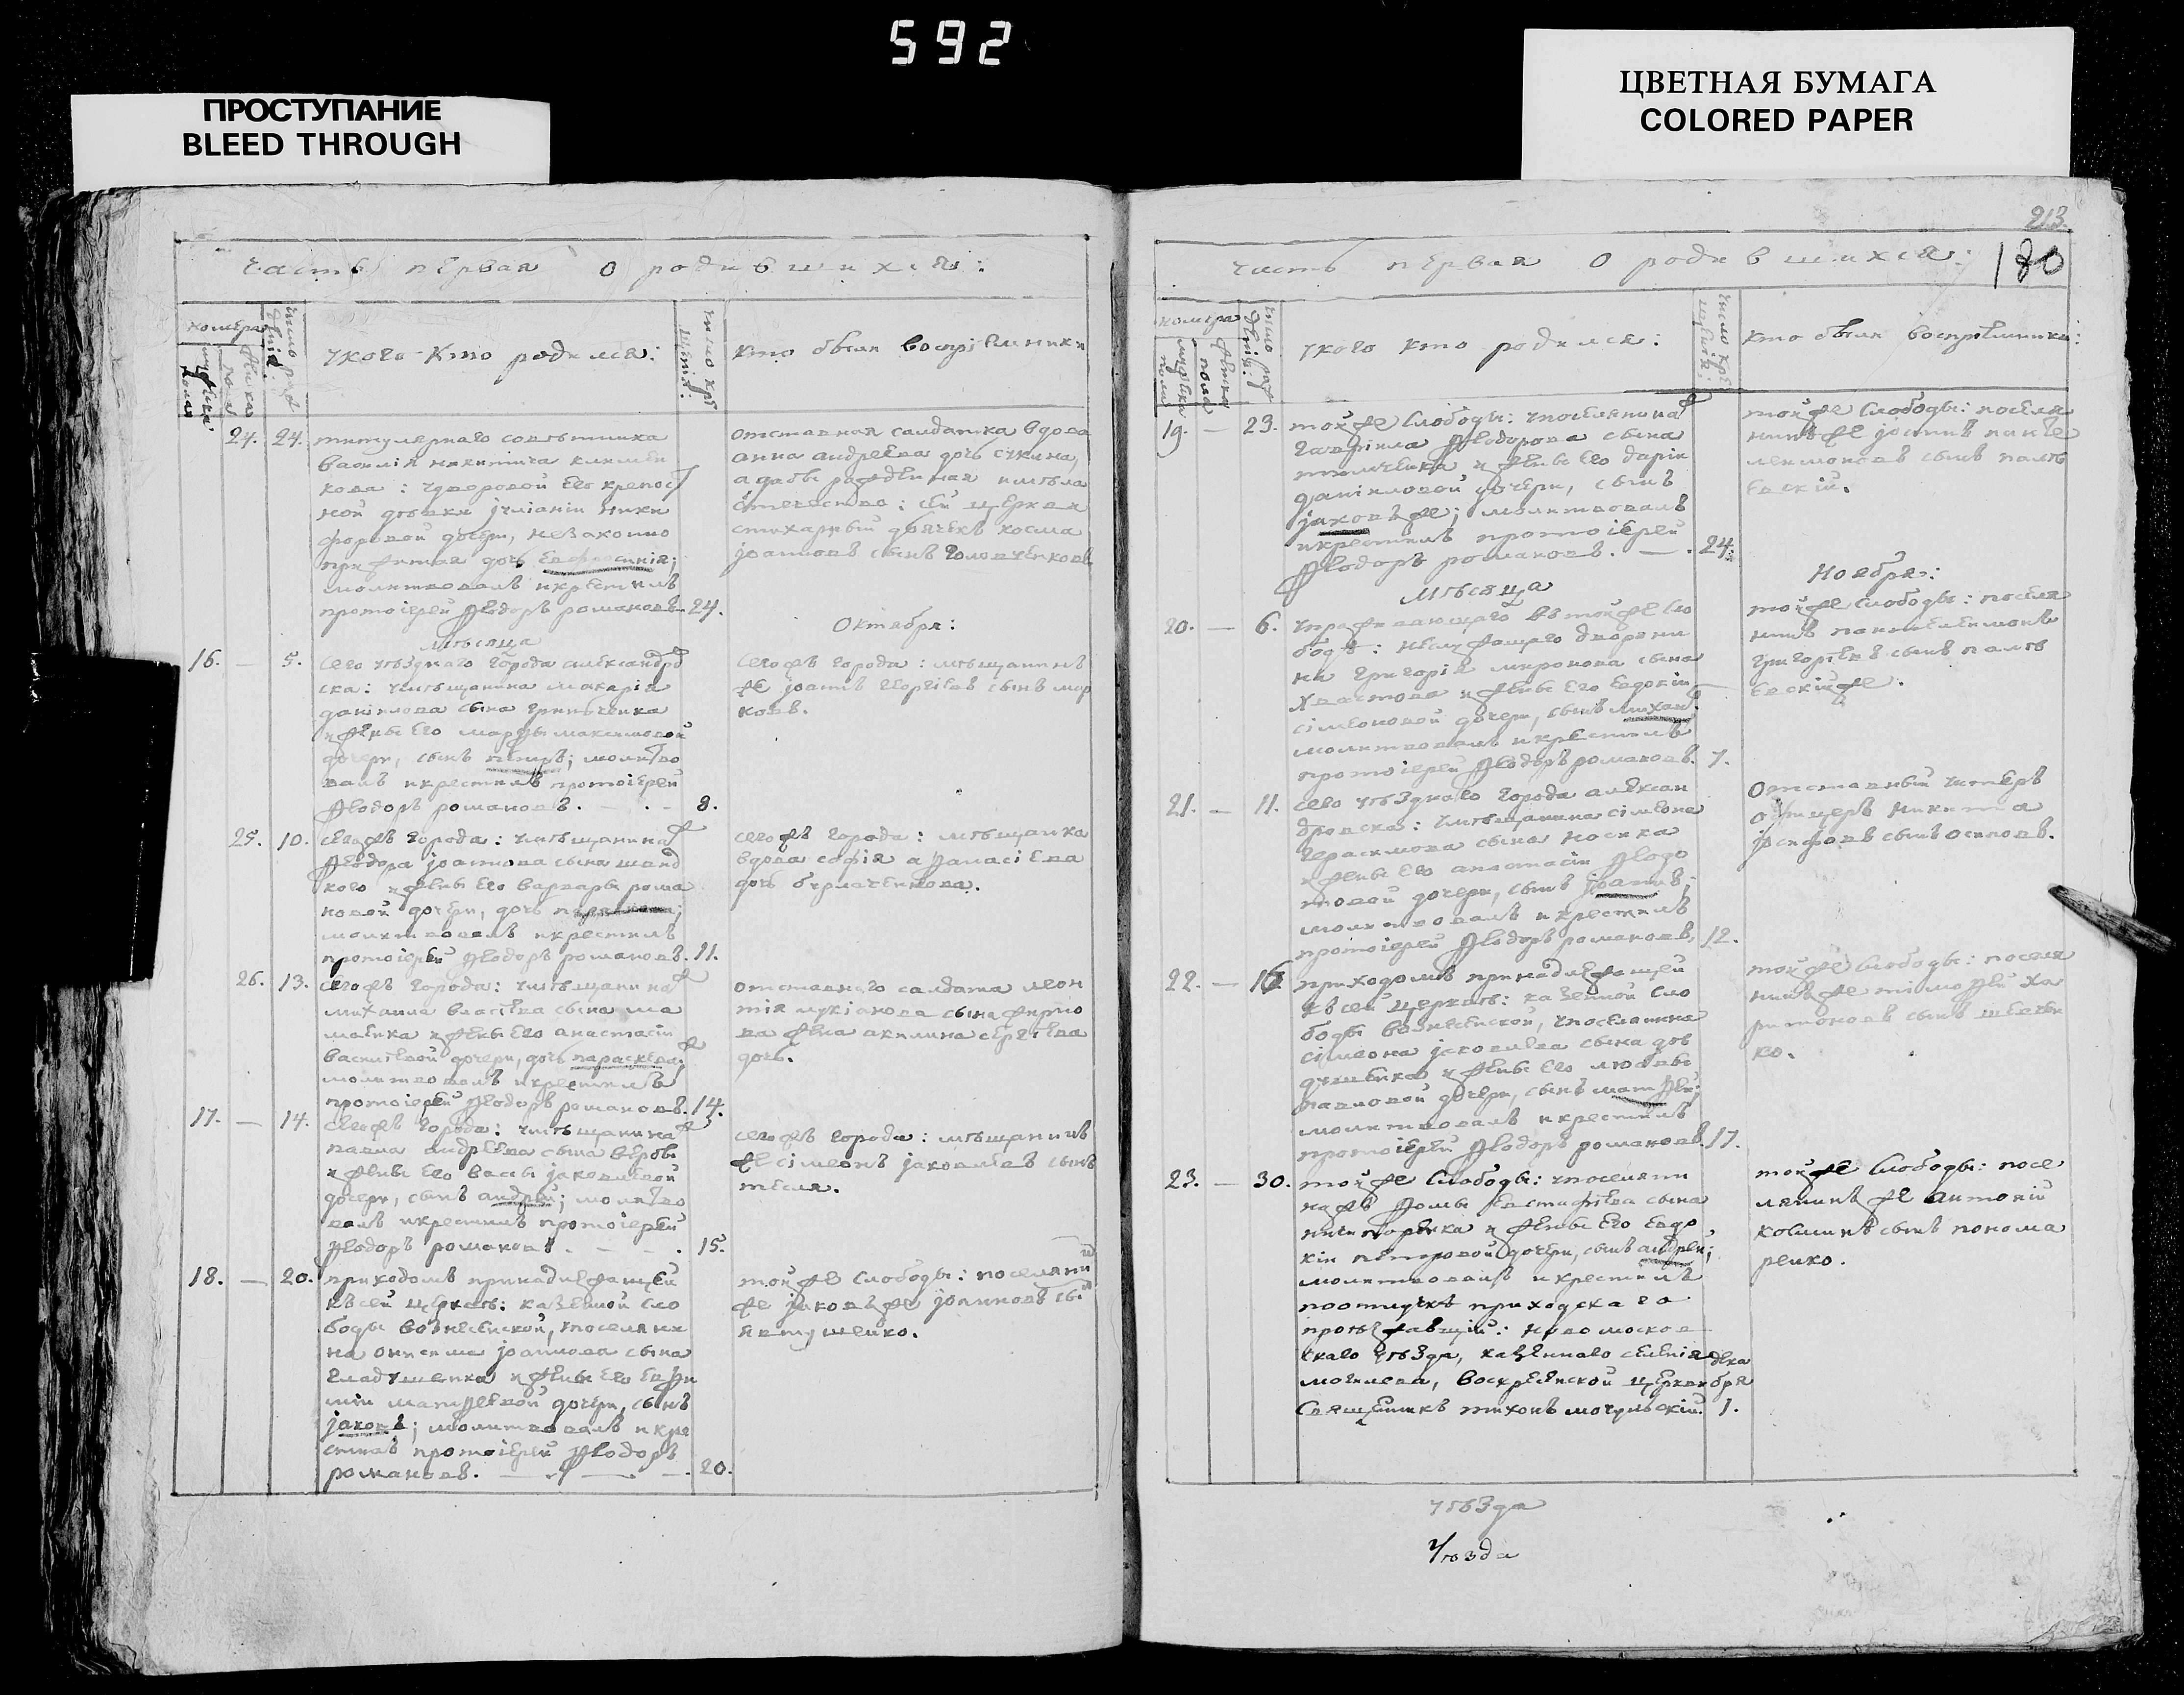 592
ПРОСТУПАНИЕ
BLEED THROUGH
ЦВЕТНАЯ БУМАГА
COLORED PAPER
часть первая о родившихся:
номера
мужеска пола
женска пола
число рожденія
у кого кто родился:
число крещенія:
кто были воспріемники
24. 24. титулярнаго совѣтника
василія никитича климен
кова: удворовой его крепос
ной дѣвки іуліаніи ники
форовой дочери, незаконно
прижитая дочь Евфросинія;
молитвовалъ икрестилъ
протоіерей Ѳеодоръ романовъ 24.
отставная салдатка вдова
анна андреева дочь
сей церкви
стихарный дьячекъ косма
іоанновъ сынъ Головченковъ
мѣсяца
Октября:
16. — 5. сего уѣзднаго города александров
ска: умѣщанина макарія
даніилова сына гринченка
ижены его марѳы максимовой
дочери, сынъ петръ; молитво
валъ икрестилъ протоіерей
Ѳеодоръ романовъ. — 8.
сегожъ города: мѣщанинъ
же іоаннъ Георгіевъ сынъ мар
ковъ.
25. 10. сегожъ города: умѣщанина
Ѳеодора іоаннова сына
кого ижены его варвары рома
новой дочери, дочь параскева;
молитвовалъ икрестилъ
протоіерей Ѳеодоръ романовъ. 11.
сегожъ города: мѣщанка
вдова софія аѳанасіева
дочь бурлаченкова.
26. 13. сегожъ города: умѣщанина
михаила власіева сына ма
маенка ижены его анастасіи
василіевой дочери, дочь параскева;
молитвовалъ икрестилъ
протоіерей Ѳеодоръ романовъ. 14.
отставнаго салдата леон
тія лукіанова сына
ва жена акилина сергіева
дочь.
17. — 14. сегожъ города: умѣщанина
павла андреева сына
ижены его вассы іаковлевой
дочери, сынъ андрей; молитво
валъ икрестилъ протоіерей
Ѳеодоръ романовъ. — . 15.
сегожъ города: мѣщанинъ
же сімеонъ іаковлевъ сынъ
тесля.
18. — 20. приходомъ принадлежащей
ксей церквѣ: казенной сло
боды вознесенской, упоселяни
на онисима іоаннова сына
гладушенка ижены его евѳи
міи матѳеевой дочери, сынъ
іаковъ; молитвовалъ икре
стилъ протоіерей Ѳеодоръ
романовъ. — 20.
тойже слободы: поселянин
же іаковъ же іоанновъ сы
евтушенко.
213.
180
часть первая о родившихся:
номера
мужеска пола
женска пола
число рожденія:
у кого кто родился:
число крещенія:
кто были воспріемники:
19. — 23. тойже слободы: упоселянина
гавріила Ѳеодорова сына
толченка ижены его даріи
даніиловой дочери, сынъ
іаковъ же; молитвовалъ
икрестилъ протоіерей
Ѳеодоръ романовъ. — 24.
тойже слободы: поселя
нинъ же іоаннъ панте
леимоновъ сынъ палѣ
евскій.
мѣсяца
Ноября:
20. — 6. упроживающаго втойже сло
бодѣ: неслужащего дворяни
на григорія миронова сына
хвостова ижены его евдокіи
сімеоновой дочери, сынъ михаилъ
молитвовалъ икрестилъ
протоіерей Ѳеодоръ романовъ. 7.
тойже слободы: поселя
нинъ пантелеимонъ
григоріевъ сынъ палѣ
евскійже.
21. — 11. сего уѣзднаго города алексан
дровска: умѣщанина сімеона
герасимова сына носика
ижены его анастасіи Ѳеодо
товой дочери, сынъ іоаннъ;
молитвовалъ икрестилъ
протоіерей Ѳеодоръ романовъ, 12.
Отставный унтеръ
офицеръ никита
іосифовъ сынъ осиповъ.
22. — 16. приходомъ принадлежащей
ксей церквѣ: казенной сло
боды вознесенской, упоселянина
сімеона іаковлева сына дов
ижены его любови
павловой дочери, сынъ матѳей;
молитвовалъ икрестилъ
протоіерей Ѳеодоръ романовъ. 17.
тойже слободы: поселя
нинъ же тімоѳей ха
ритоновъ сынъ шевчен
ко.
23. — 30. тойже слободы: упоселяни
нажъ Ѳомы Евстафіева сына
ничипоренка ижены его евдо
кіи петровой дочери, сынъ андрей;
молитвовалъ икрестилъ
поотлучкѣ приходскаго
проѣзжавшій: новомосков
скаго уѣзда, казеннаго селенія
могилева, воскресенской церкви
Священникъ тихонъ мочульскій.
дека
бря
1.
тойже слободы: посе
лянинъ же антоній
косминъ сынъ понома
ренко.
уѣзда
уѣзда